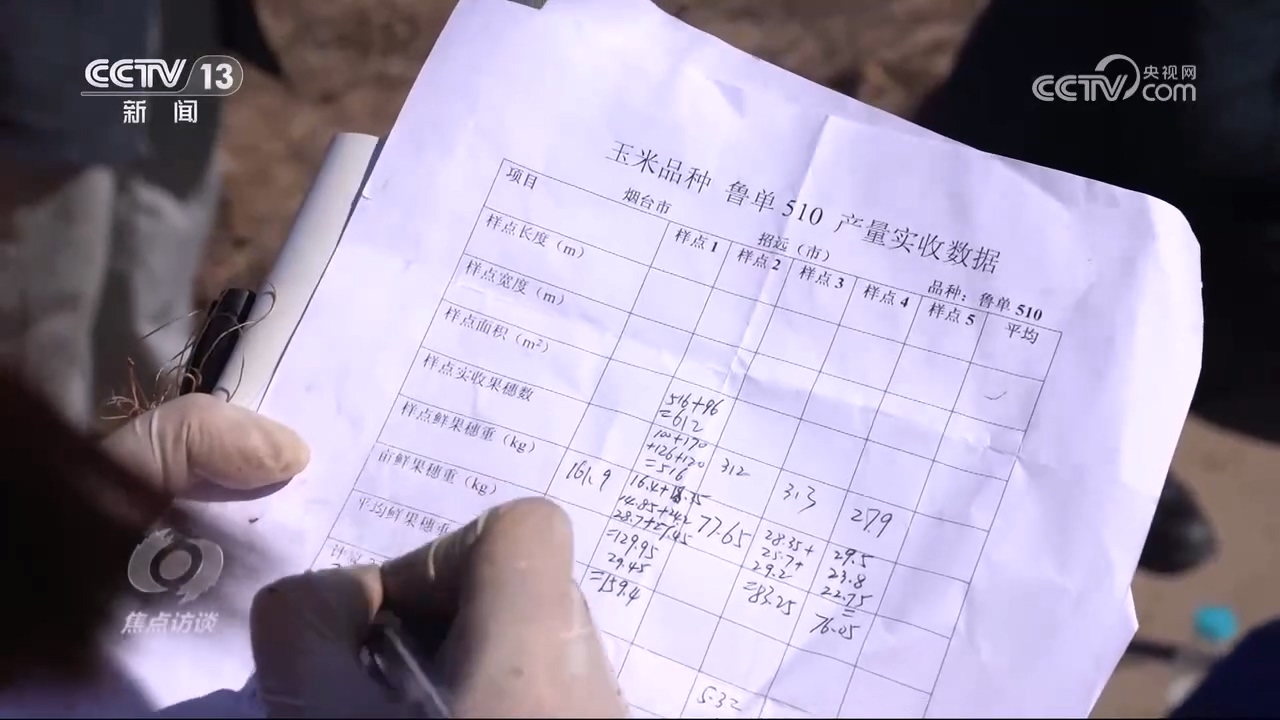 CCTV 13
新闻
央视网
CCTV.com
玉米品种 鲁单 510 产量实收数据
烟台市 招远（市） 品种：鲁单 510
项目 样点 1 样点 2 样点 3 样点 4 样点 5 平均
样点长度（m）
样点宽度（m）
样点面积（m²）
样点实收果穗数
516+96
=612
100+170
+126+120
=516
312
313
279
样点鲜果穗重（kg）
161.9
14.85+24.2
28.7+27.45
=129.95
29.45
=159.4
77.65
28.35+
25.7+
29.2
=83.25
29.5
23.8
22.75
=
76.05
亩鲜果穗重（kg）
平均鲜果穗重
5.32
焦点访谈